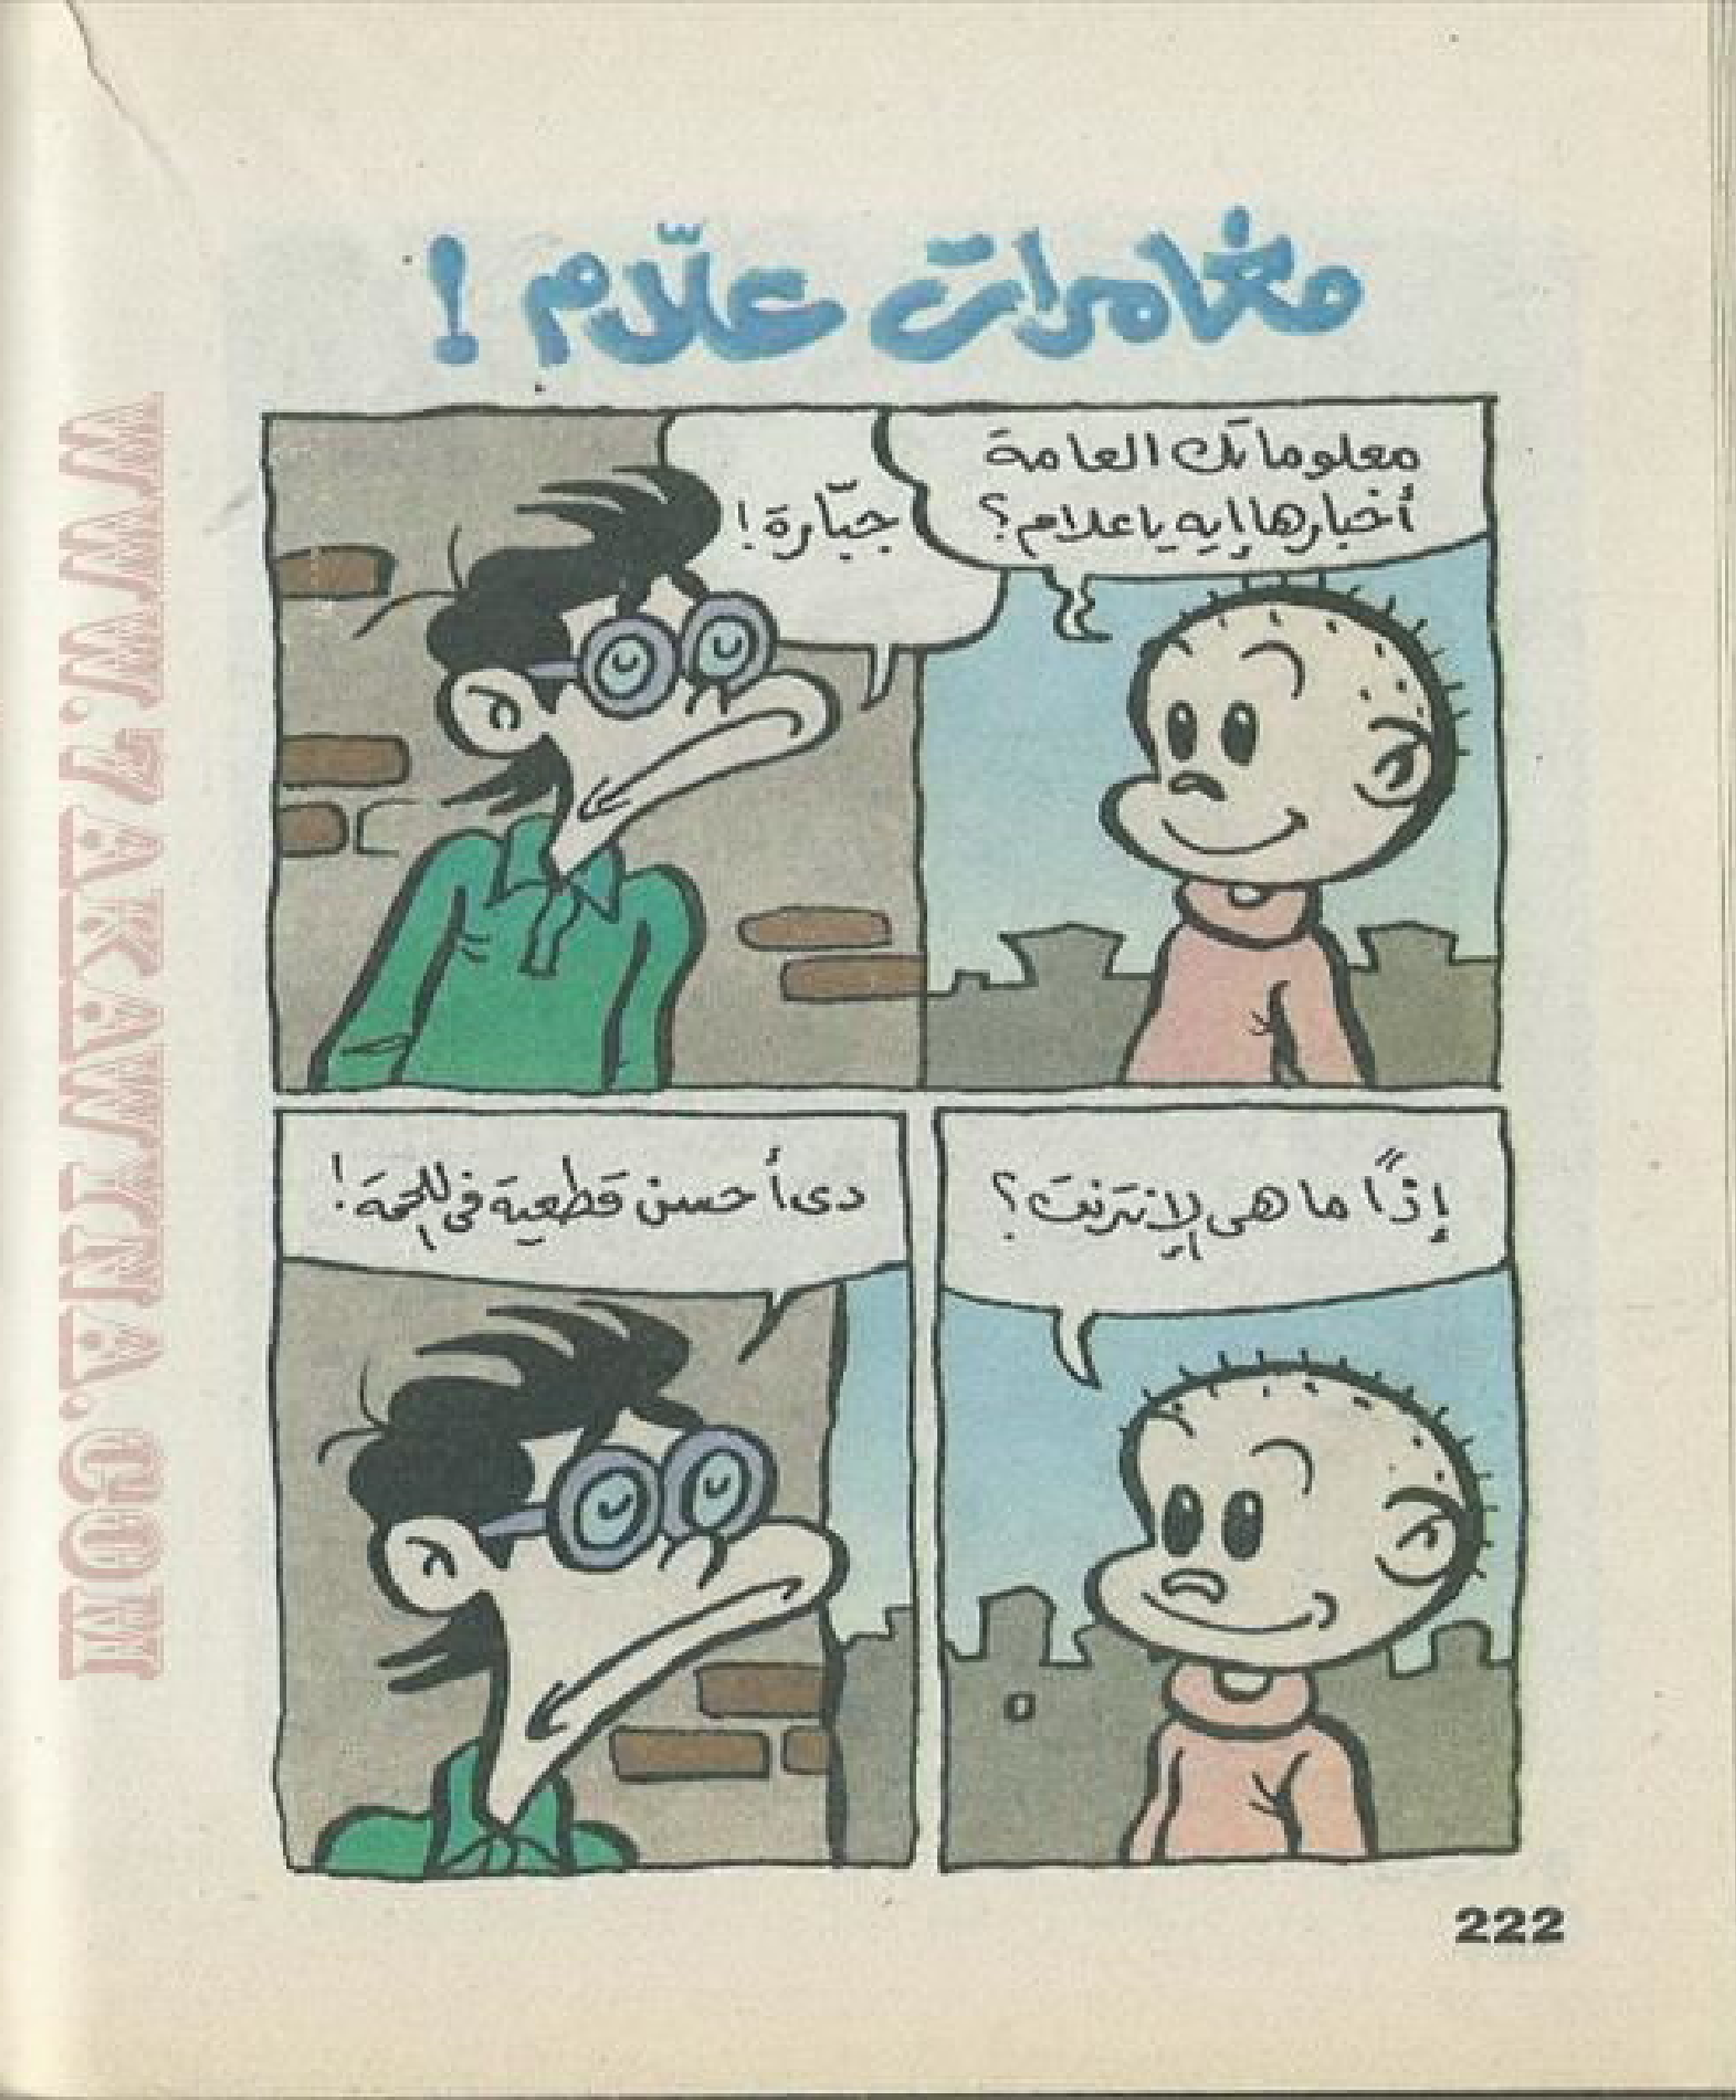 مغامرات علّام !
معلوماتك العامة
أخبارها إيه يا علام؟
جبّارة!
إذًا ما هي الإنترنت؟
دى أحسن قطعية فى اللحمة!
222
WWW.7AKAWITNA.COM